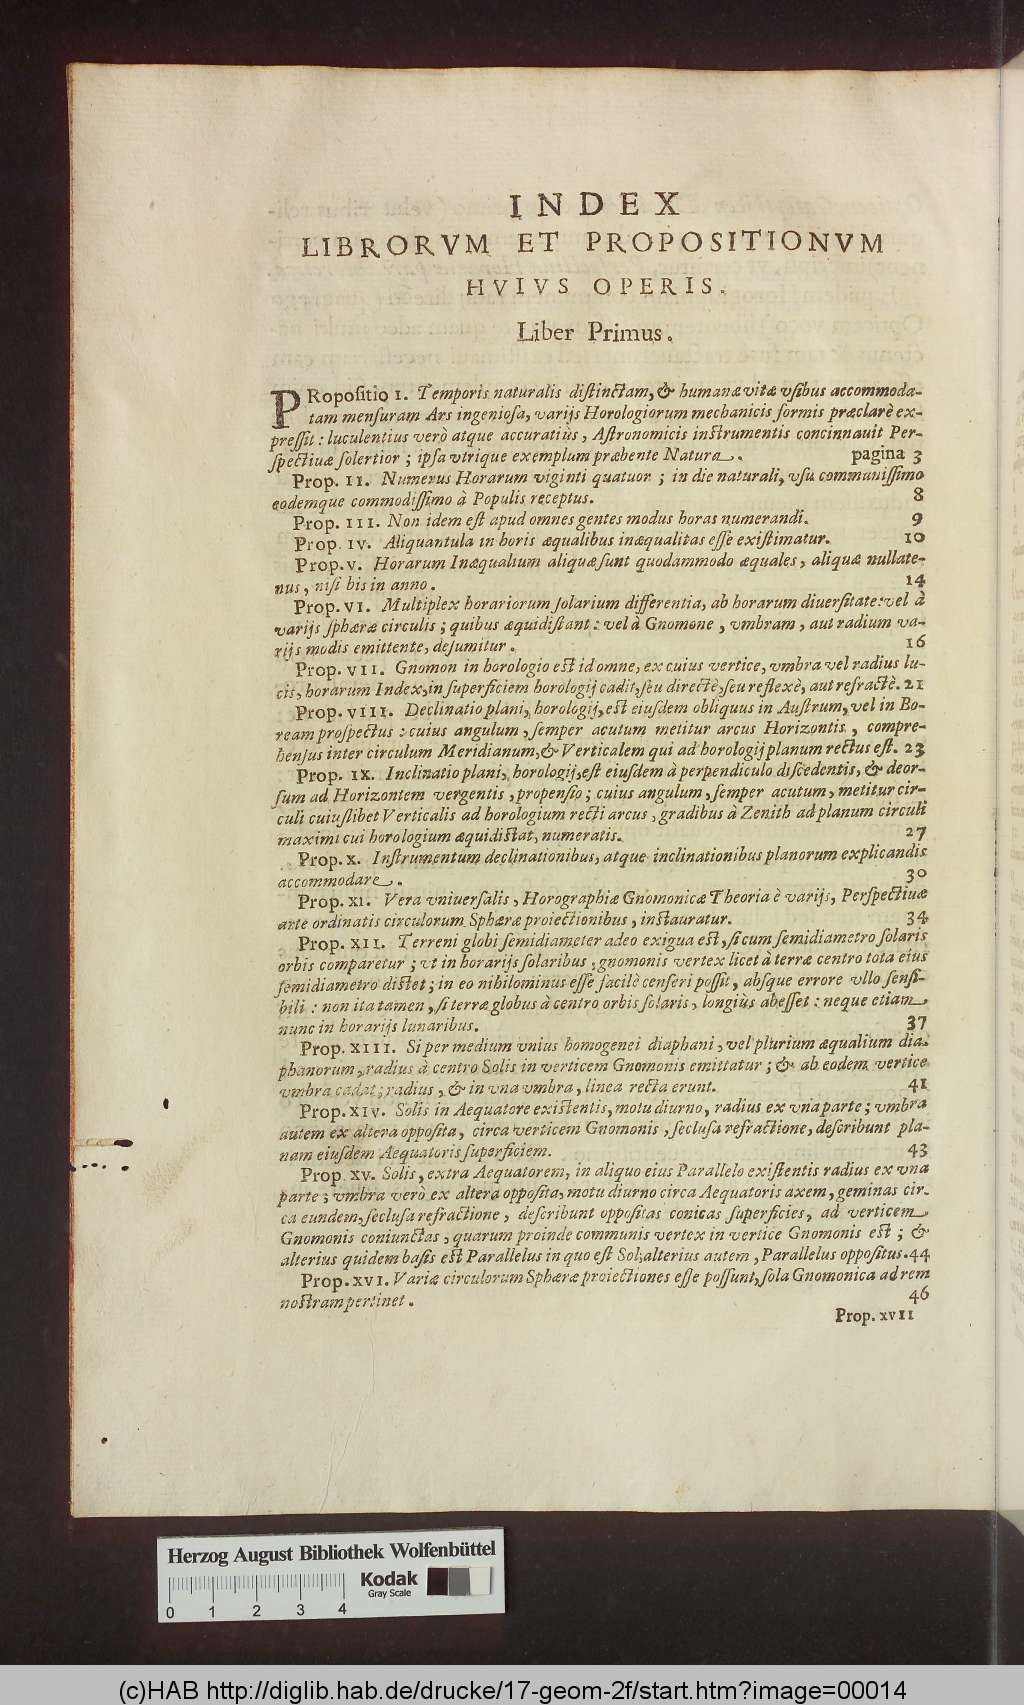 INDEX
LIBRORVM ET PROPOSITIONVM
HVIVS OPERIS.
Liber Primus.
PRopoſitio I. Temporis naturalis diſtinctam, & humanæ vitæ vſibus accommoda-
tam menſuram Ars ingenioſa, varijs Horologiorum mechanicis formis præclarè ex-
preſſit: luculentius verò atque accuratiùs, Aſtronomicis inſtrumentis concinnauit Per-
ſpectiuæ ſolertior; ipſa vtrique exemplum præbente Natura. pagina 3
Prop. II. Numerus Horarum viginti quatuor; in die naturali, vſu communiſſimo
eodemque commodiſſimo à Populis receptus. 8
Prop. III. Non idem eſt apud omnes gentes modus horas numerandi. 9
Prop. IV. Aliquantula in horis æqualibus inæqualitas eſſe exiſtimatur. 10
Prop. V. Horarum Inæqualium aliquæ ſunt quodammodo æquales, aliquæ nullate-
nus, niſi bis in anno. 14
Prop. VI. Multiplex horariorum ſolarium differentia, ab horarum diuerſitate: vel à
varijs ſphæræ circulis; quibus æquidiſtant: vel à Gnomone, vmbram, aut radium va-
rijs modis emittente, deſumitur. 16
Prop. VII. Gnomon in horologio eſt id omne, ex cuius vertice, vmbra vel radius lu-
cis, horarum Index, in ſuperficiem horologij cadit, ſeu directè, ſeu reflexè, aut refractè. 21
Prop. VIII. Declinatio plani, horologij, eſt eiuſdem obliquus in Auſtrum, vel in Bo-
ream proſpectus: cuius angulum, ſemper acutum metitur arcus Horizontis, compre-
henſus inter circulum Meridianum, & Verticalem qui ad horologij planum rectus eſt. 23
Prop. IX. Inclinatio plani, horologij, eſt eiuſdem à perpendiculo diſcedentis, & deor-
ſum ad Horizontem vergentis, propenſio; cuius angulum, ſemper acutum, metitur cir-
culi cuiuſlibet Verticalis ad horologium recti arcus, gradibus à Zenith ad planum circuli
maximi cui horologium æquidiſtat, numeratis. 27
Prop. X. Inſtrumentum declinationibus, atque inclinationibus planorum explicandis
accommodare. 30
Prop. XI. Vera vniuerſalis, Horographiæ Gnomonicæ Theoria è varijs, Perſpectiuæ
arte ordinatis circulorum Sphæræ proiectionibus, inſtauratur. 34
Prop. XII. Terreni globi ſemidiameter adeo exigua eſt, ſi cum ſemidiametro ſolaris
orbis comparetur; vt in horarijs ſolaribus, gnomonis vertex licet à terræ centro tota eius
ſemidiametro diſtet; in eo nihilominus eſſe facilè cenſeri poſſit, abſque errore vllo ſenſi-
bili: non ita tamen, ſi terræ globus à centro orbis ſolaris, longiùs abeſſet: neque etiam
nunc in horarijs lunaribus. 37
Prop. XIII. Si per medium vnius homogenei diaphani, vel plurium æqualium dia-
phanorum, radius à centro Solis in verticem Gnomonis emittatur; & ab eodem vertice
vmbra cadat; radius, & in vna vmbra, linea recta erunt. 41
Prop. XIV. Solis in Aequatore exiſtentis, motu diurno, radius ex vna parte; vmbra
autem ex altera oppoſita, circa verticem Gnomonis, ſecluſa refractione, deſcribunt pla-
nam eiuſdem Aequatoris ſuperficiem. 43
Prop. XV. Solis, extra Aequatorem, in aliquo eius Parallelo exiſtentis radius ex vna
parte; vmbra verò ex altera oppoſita, motu diurno circa Aequatoris axem, geminas cir-
ca eundem, ſecluſa refractione, deſcribunt oppoſitas conicas ſuperficies, ad verticem
Gnomonis coniunctas, quarum proinde communis vertex in vertice Gnomonis eſt; &
alterius quidem baſis eſt Parallelus in quo eſt Sol; alterius autem, Parallelus oppoſitus. 44
Prop. XVI. Variæ circulorum Sphæræ proiectiones eſſe poſſunt, ſola Gnomonica ad rem
noſtram pertinet. 46
Prop. XVII
Herzog August Bibliothek Wolfenbüttel
Kodak
Gray Scale
0 1 2 3 4
(c)HAB http://diglib.hab.de/drucke/17-geom-2f/start.htm?image=00014